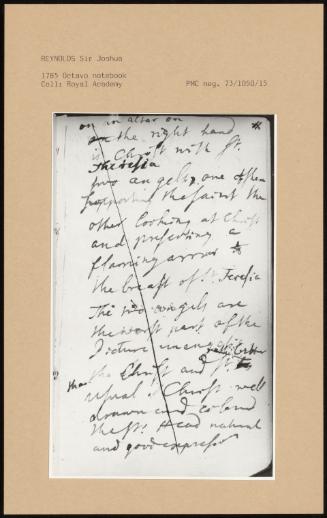 REYNOLDS Sir Joshua
1785 Octavo notebook
Coll: Royal Academy
PMC neg. 73/1050/15
on an altar on
on the right hand
is Christ with St.
Theresia
two angels, one of them
supporting the saint the
other looking at Christ
and presenting a
flaming arrow to
the breast of St. Teresia
The two angels are
the worst part of the
Picture
the Christ and St.
than usual Christ well
drawn and coloured
the St. Head natural
and good expression